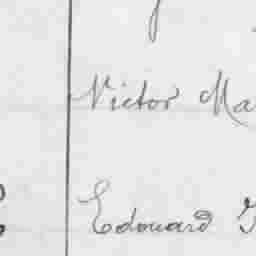 Victor Ma
Edouard